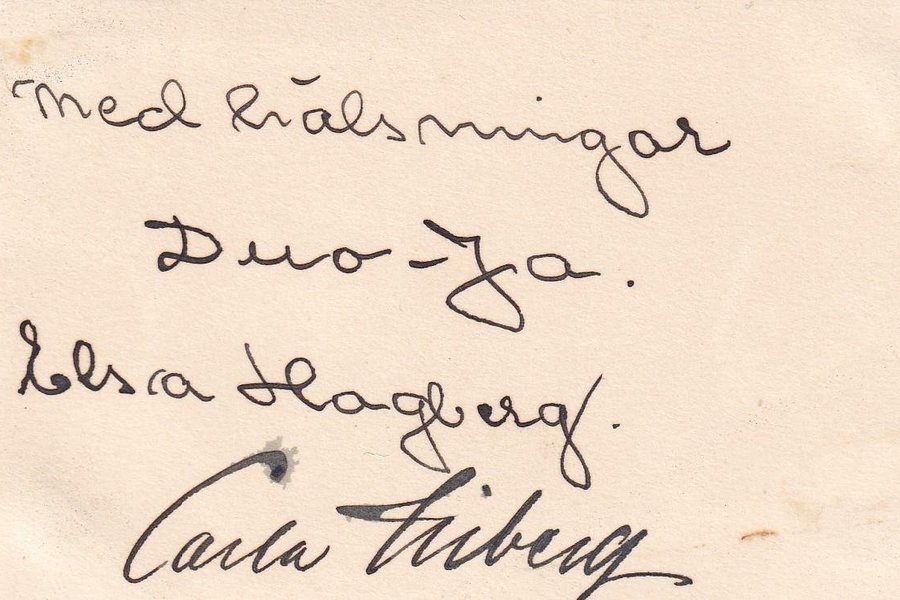 Med hälsningar
Duo-Ja.
Elsa Hagberg.
Carla